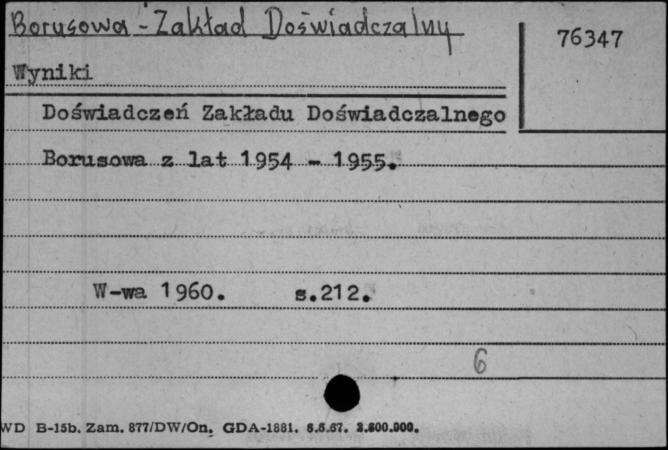 Borusowa - Zakład Doświadczalny
76347
Wyniki
Doświadczeń Zakładu Doświadczalnego
Borusowa z lat 1954 - 1955.
W-wa 1960. s.212.
6
WD B-15b. Zam. 877/DW/On. GDA-1881. 8.6.67. 2.800.000.